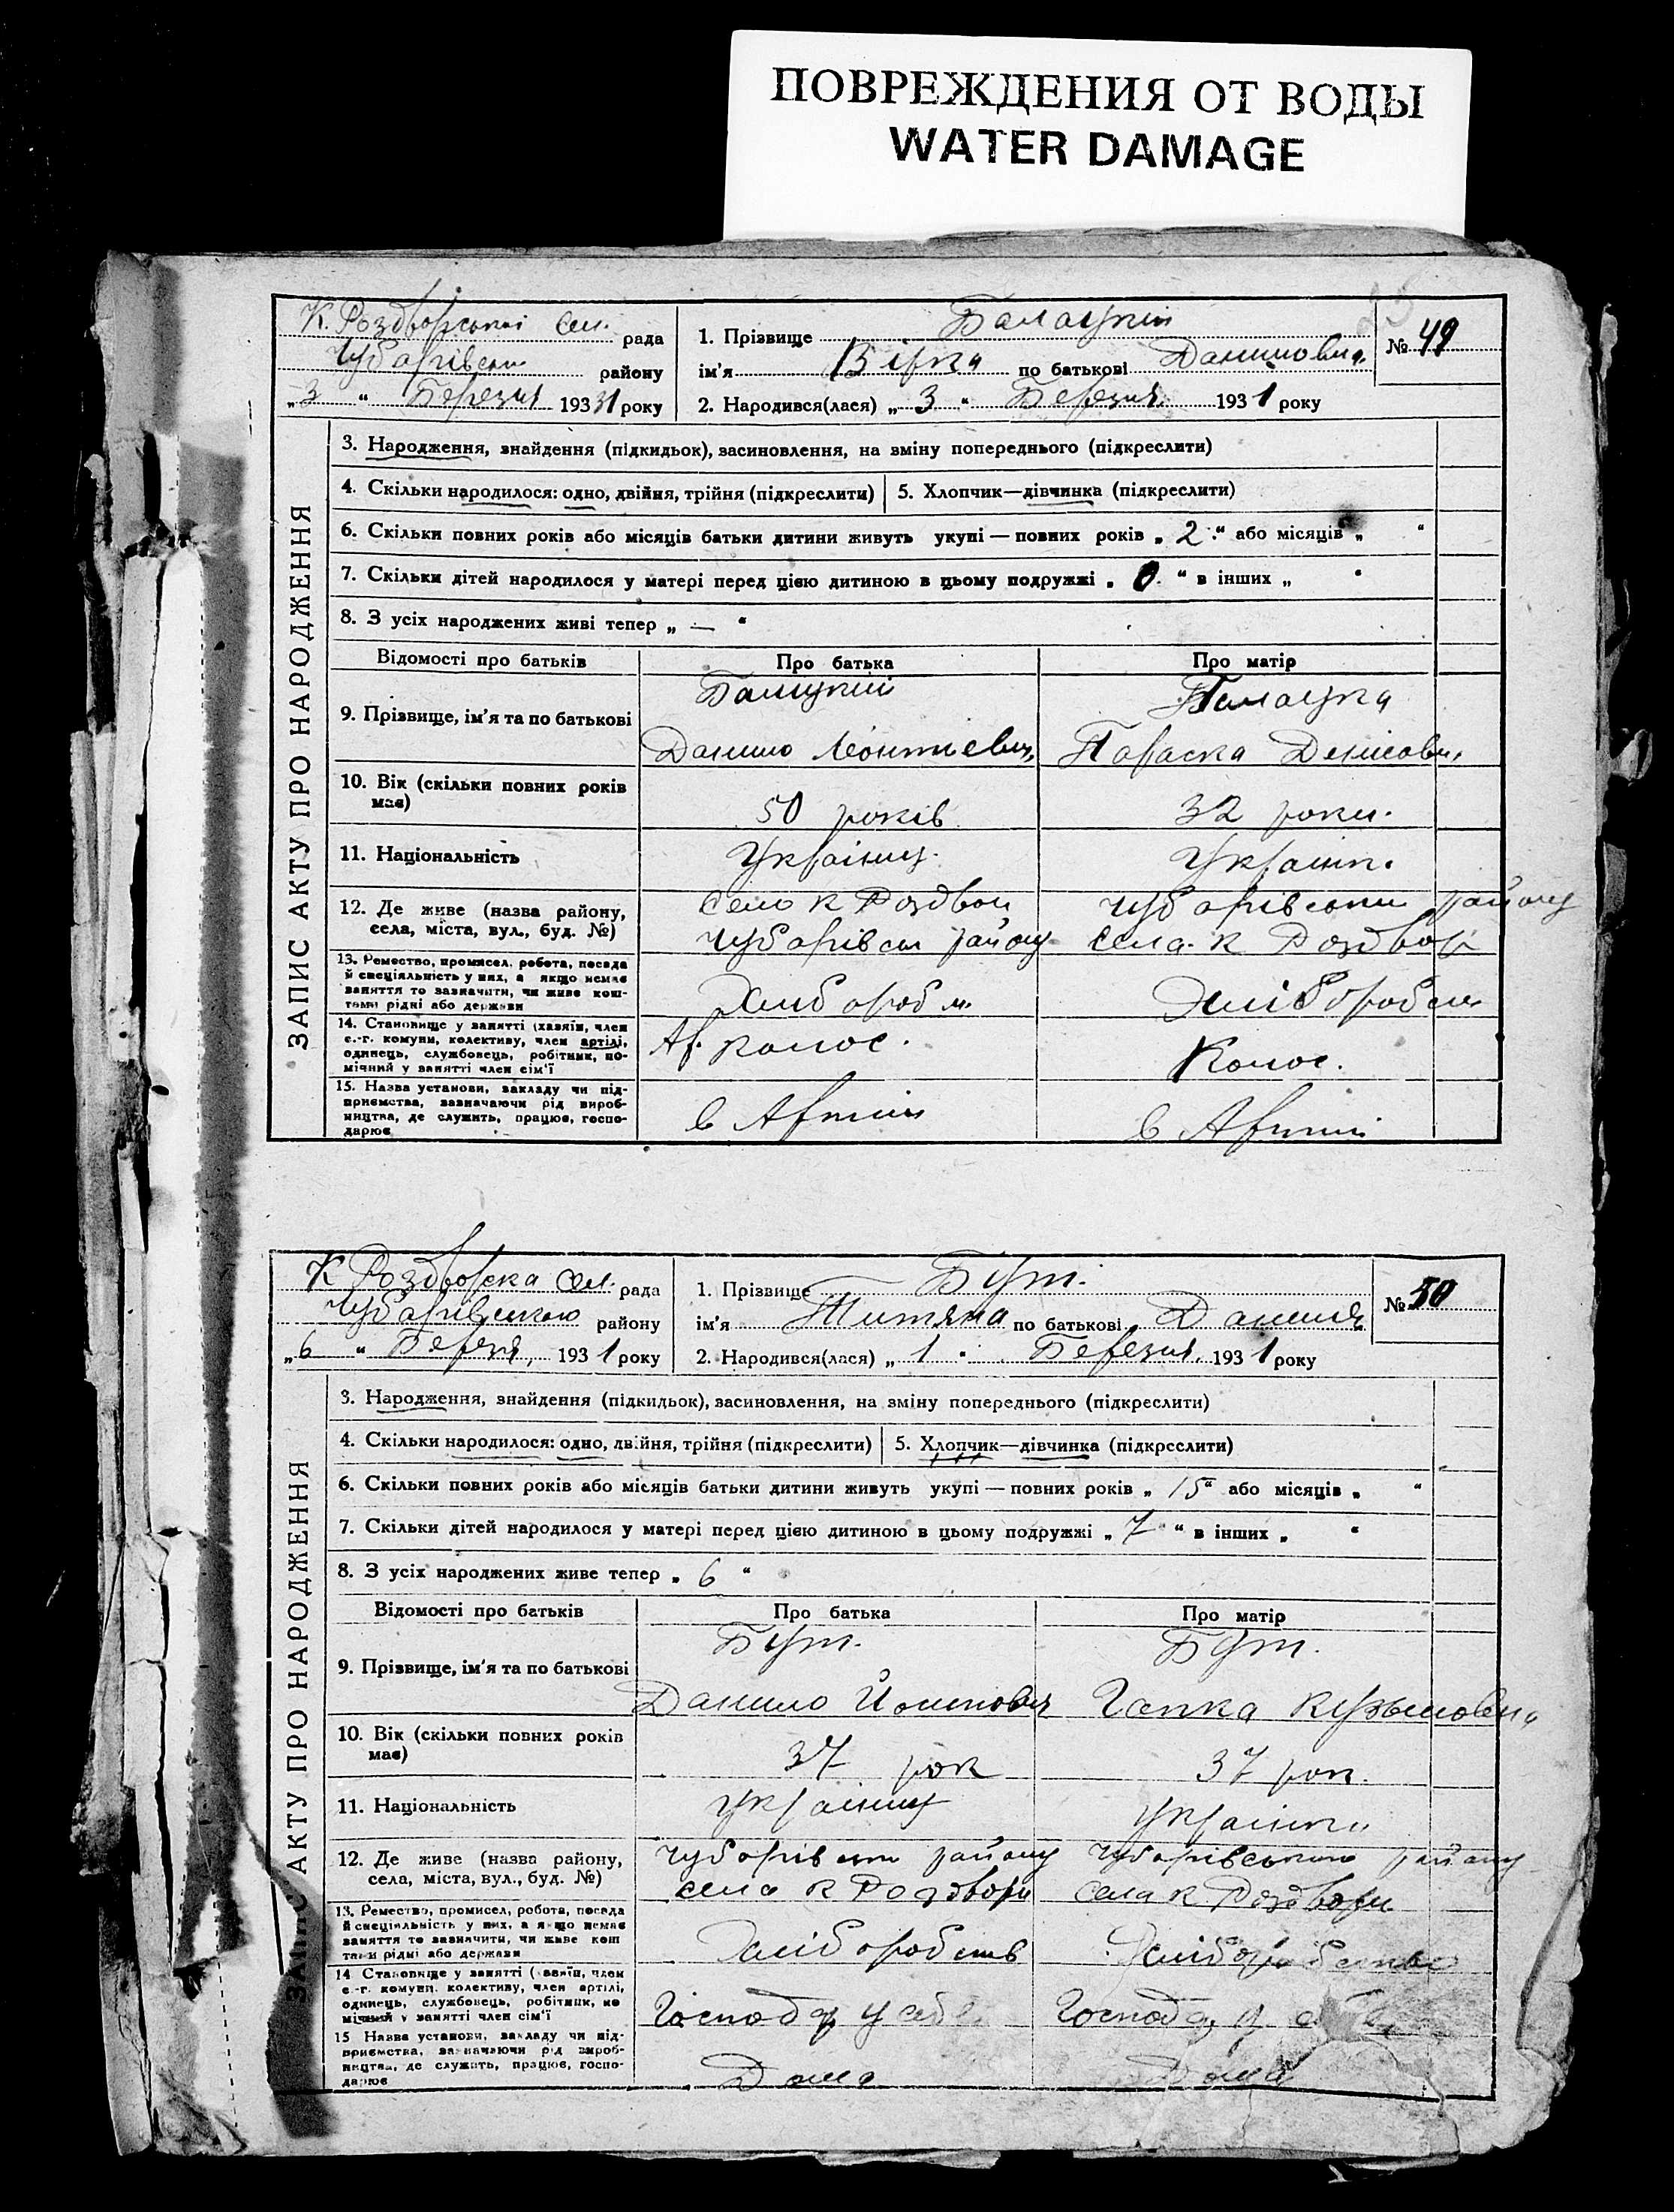 ПОВРЕЖДЕНИЯ ОТ ВОДЫ
WATER DAMAGE
К. Роздворської сел. рада
Чубарівськ району
„3“ Березня 1931 року
1. Прізвище Балацкій
ім'я Вірка по батькові Даниловна
2. Народився(лася) „3“ Березня 1931 року
№ 49
ЗАПИС АКТУ ПРО НАРОДЖЕННЯ
3. Народження, знайдення (підкидьок), засиновлення, на зміну попереднього (підкреслити)
4. Скільки народилося: одно, двійня, трійня (підкреслити) 5. Хлопчик—дівчинка (підкреслити)
6. Скільки повних років або місяців батьки дитини живуть укупі — повних років „2“ або місяців „ “
7. Скільки дітей народилося у матері перед цією дитиною в цьому подружжі „0“ в інших „ “
8. З усіх народжених живі тепер „—“
Відомості про батьків Про батька Про матір
9. Прізвище, ім'я та по батькові
Балацкій
Данило Леонтієвич
Балацка
Параска Денисовн
10. Вік (скільки повних років має)
50 років 32 роки.
11. Національність Українц. Українк.
12. Де живе (назва району, села, міста, вул., буд. №)
село К Роздвои
Чубарівськ району
Чубарівськи району
села К Роздвор
13. Ремество, промисел, робота, посада
й спеціяльність у них, а якщо немає
заняття то зазначити, чи живе кош-
тами рідні або держави
Хлібороб
14. Становище у занятті (хазяїн, член
с.-г. комуни, колективу, член артілі,
одинець, службовець, робітник, по-
мічний у занятті член сім'ї
Ар. колос.
Колос.
15. Назва установи, закладу чи під-
приємства, зазначаючи рід вироб-
ництва, де служить, працює, госпо-
дарює
в Артілі в Артілі
К Роздворска сел. рада
Чубарівського району
„6“ Березня, 1931 року
1. Прізвище Бут.
ім'я Титяна по батькові Данил
2. Народився(лася) „1“ Березня 1931 року
№ 50
ЗАПИС АКТУ ПРО НАРОДЖЕННЯ
3. Народження, знайдення (підкидьок), засиновлення, на зміну попереднього (підкреслити)
4. Скільки народилося: одно, двійня, трійня (підкреслити) 5. Хлопчик—дівчинка (підкреслити)
6. Скільки повних років або місяців батьки дитини живуть укупі — повних років „15“ або місяців „ “
7. Скільки дітей народилося у матері перед цією дитиною в цьому подружжі „7“ в інших „ “
8. З усіх народжених живе тепер „6“
Відомості про батьків Про батька Про матір
9. Прізвище, ім'я та по батькові
Бут.
Данило Йосипович
Бут.
Гапка Кузьмовна
10. Вік (скільки повних років має)
37 рок 37 рок.
11. Національність Українц Українк
12. Де живе (назва району, села, міста, вул., буд. №)
Чубарівськ району
села К Роздвори
Чубарівського району
села К Роздвори
13. Ремество, промисел, робота, посада
й спеціяльність у них, а якщо немає
заняття то зазначити, чи живе кош
тами рідні або держави
Хліборобств
14 Становище у занятті (хазяїн, член
с.-г. комуни, колективу, член артілі,
одинець, службовець, робітник, по
мічний у занятті член сім'ї
Господар у себе. Господар у
15 Назва установи, закладу чи під-
приємства, зазначаючи рід вироб-
ництва, де служить, працює, госпо-
дарює
Дома Дома